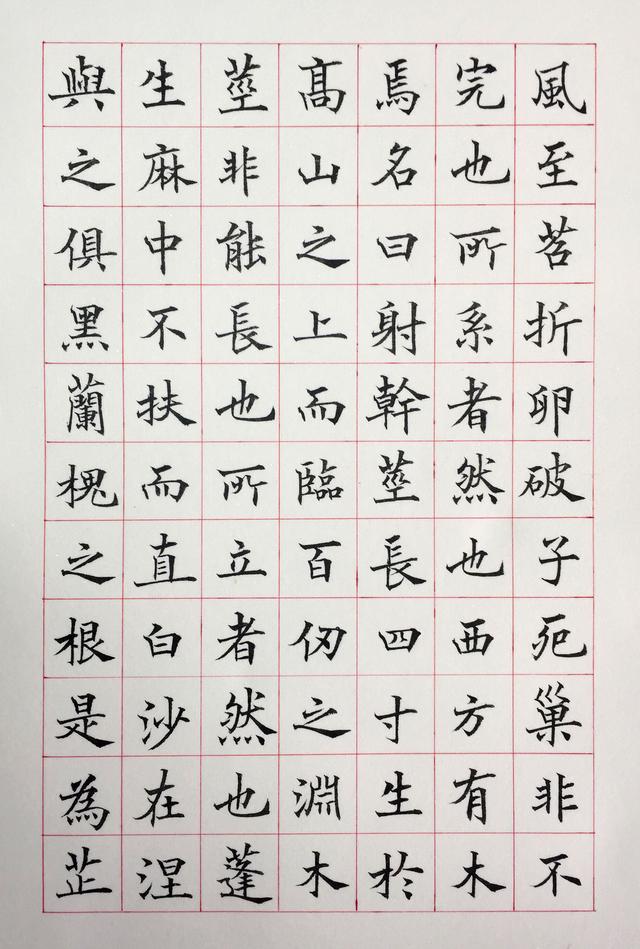 風至苕折卵破子死巢非不
完也所系者然也西方有木
焉名曰射幹莖長四寸生於
高山之上而臨百仞之淵木
莖非能長也所立者然也蓬
生麻中不扶而直白沙在涅
與之俱黑蘭槐之根是為芷